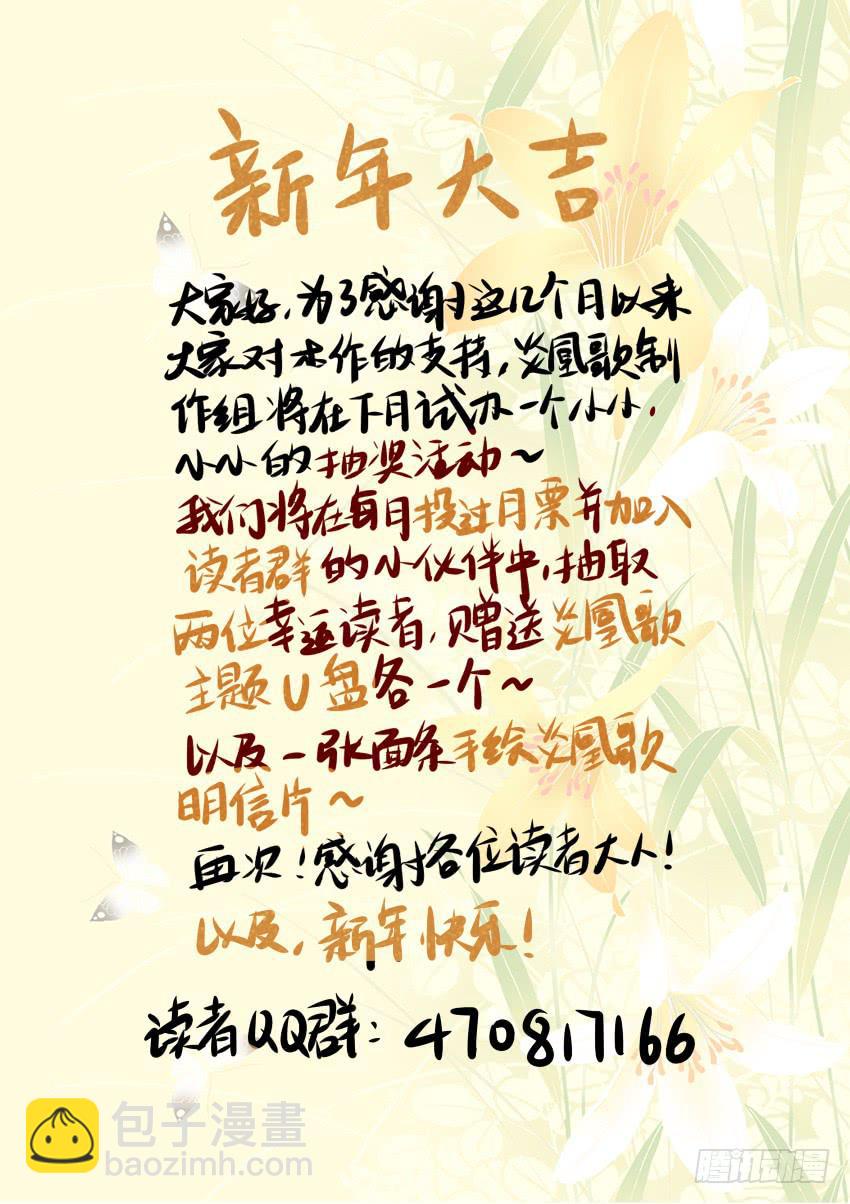 新年大吉
大家好,为了感谢这几个月以来
大家对本作的支持,炎凰歌制
作组将在下月试办一个小小.
小小的抽奖活动~
我们将在每月投过月票并加入
读者群的小伙伴中,抽取
两位幸运读者,赠送炎凰歌
主题U盘各一个~
以及一张面条手绘炎凰歌
明信片~
再次!感谢各位读者大人!
以及,新年快乐!
读者QQ群:470817166
包子漫畫
baozimh.com
腾讯动漫